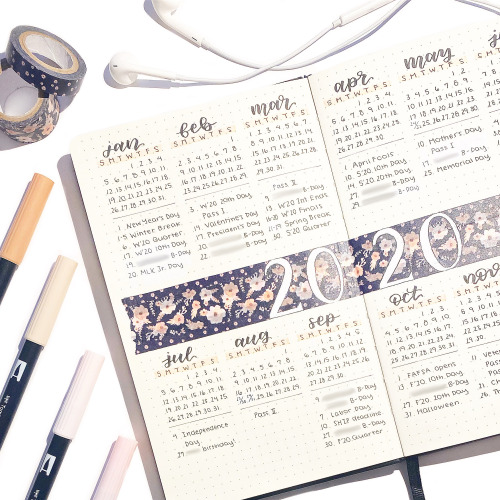 jan
S M T W T F S
1 2 3 4
5 6 7 8 9 10 11
12 13 14 15 16 17 18
19 20 21 22 23 24 25
26 27 28 29 30 31
1 New Years Day
1-5 Winter Break
6 W'20 Quarter
17 W'20 10th Day
19 B-Day
20 MLK Jr. Day
feb
S M T W T F S
1
2 3 4 5 6 7 8
9 10 11 12 13 14 15
16 17 18 19 20 21 22
23 24 25 26 27 28 29
3 W'20 20th Day
Pass I
14 Valentines Day
17 President's Day
20 B-Day
22 B-Day
mar
S M T W T F S
1 2 3 4 5 6 7
8 9 10 11 12 13 14
15 16 17 18 19 20 21
22 23 24 25 26 27 28
29 30 31
Pass II
7 B-Day
W20 Int Ends
W'20 Finals
Spring Break
30 S'20 Quarter
apr
S M T W T F S
1 2 3 4
5 6 7 8 9 10 11
12 13 14 15 16 17 18
19 20 21 22 23 24 25
26 27 28 29 30
1 April Fools
S'20 10th Day
S'20 20th Day
B-Day
29 B-Day
may
S M T W T F S
1 2
3 4 5 6 7 8 9
10 11 12 13 14 15 16
10 Mothers Day
Pass I
17 B-Day
25 Memorial Day
2020
jul
S M T W T F S
1 2 3 4
5 6 7 8 9 10 11
12 13 14 15 16 17 18
19 20 21 22 23 24 25
26 27 28 29 30 31
4 Independence
Day
birthday!
aug
S M T W T F S
1
2 3 4 5 6 7 8
9 10 11 12 13 14 15
16 17 18 19 20 21 22
Pass II
sep
S M T W T F S
1 2 3 4 5
6 7 8 9 10 11 12
13 14 15 16 17 18 19
20 21 22 23 24 25 26
27 28 29 30
B-Day
7 Labor Day
SHIP deadline
B-Day
30 F'20 Quarter
oct
S M T W T F S
1 2 3
4 5 6 7 8 9 10
11 12 13 14 15 16 17
18 19 20 21 22 23 24
25 26 27 28 29 30 31
1 FAFSA opens
F'20 10th Day
B-Day
27 F'20 20th Day
31 Halloween
nov
S M T W